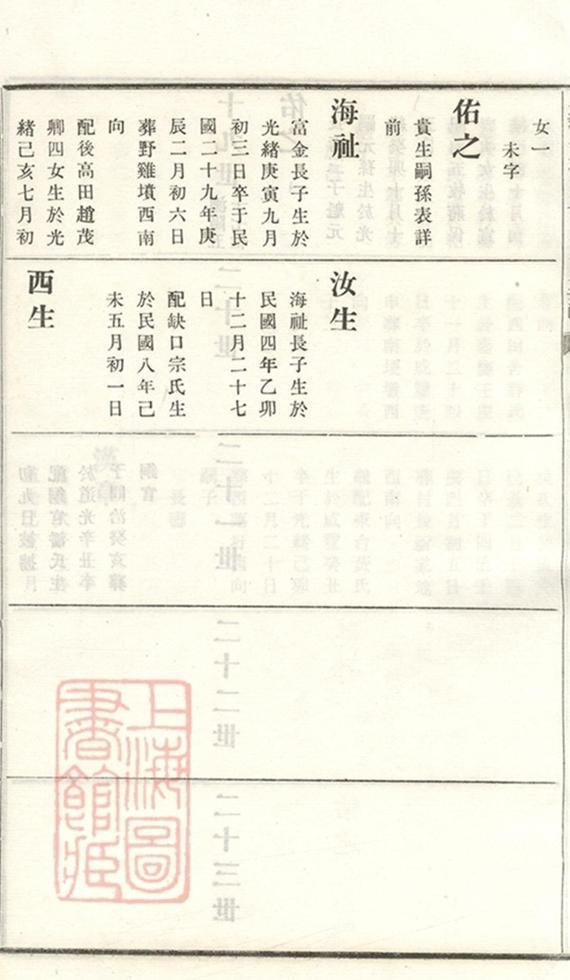 女一
未字
佑之
貴生嗣孫表詳
前
海祉
富金長子生於
光緒庚寅九月
初三日卒于民
國二十九年庚
辰二月初六日
葬野雞墳西南
向
配後高田趙茂
卿四女生於光
緒己亥七月初
汝生
海祉長子生於
民國四年乙卯
十二月二十七
日
配缺口宗氏生
於民國八年己
未五月初一日
西生
上海圖
書館藏